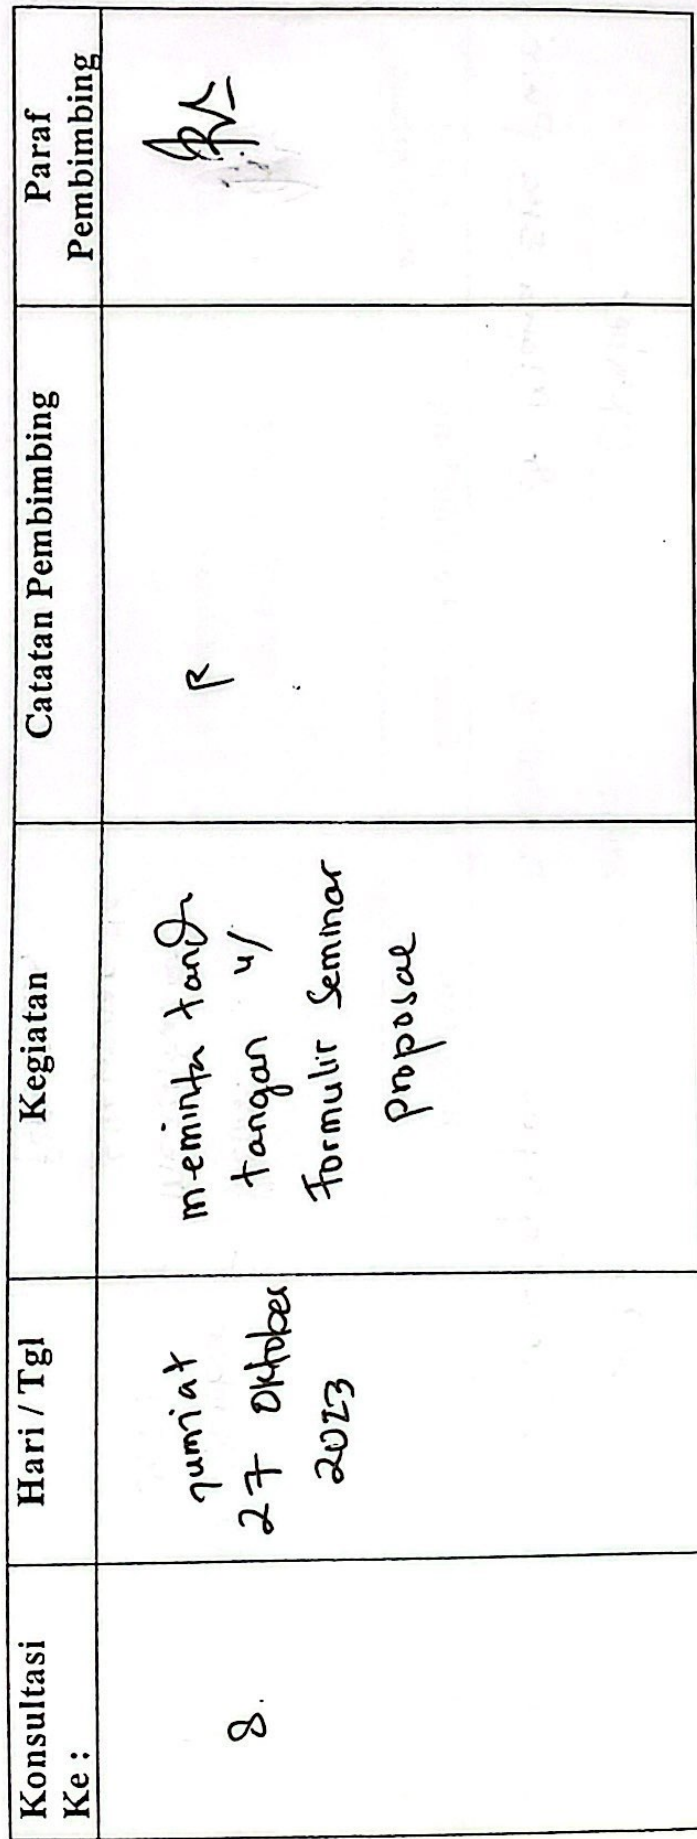 Konsultasi
Ke :
Hari / Tgl
Kegiatan
Catatan Pembimbing
Paraf
Pembimbing
8.
Jumiat
27 Oktober
2023
meminta tanda
tangan u/
Formulir Seminar
proposal